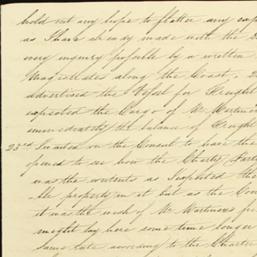 hold out any hope to flatter any exp
as I have already made with the
every inquiry possible by a written
Magistrates along the Coast,
advertised the Vessel for Freight
expected the Cargo of Mr Martinez
immediately the balance of Freight
23rd I waited on the Consul to have the
opened to see how the Charter Part
was the contents as suspected the
the property in it but as the Con
it was the wish of Mr Martinez for
might lay here some time longer
same late according to the Charter